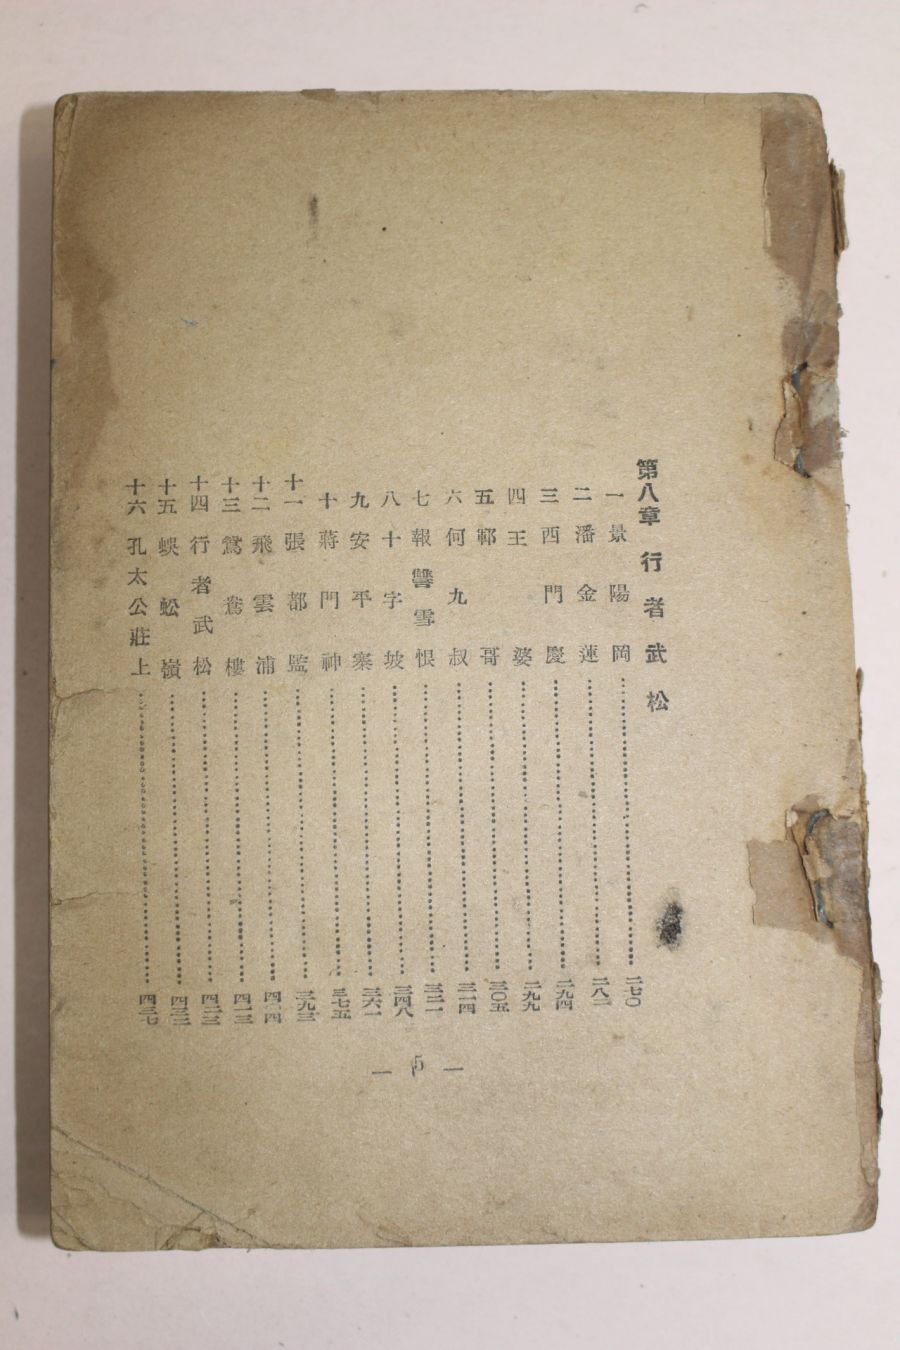 第八章 行者武松
一 景陽岡 二七〇
二 潘金蓮 二八二
三 西門慶 二九四
四 王婆 二九九
五 鄆哥 三〇五
六 何九叔 三一四
七 報讐雪恨
八 十字坡 三四八
九 安平寨 三六一
十 蔣門神 三七五
十一 張都監 三九三
十二 飛雲浦
十三 鴛鴦樓 四一三
十四 行者武松 四二三
十五 蜈蚣嶺 四三三
十六 孔太公莊上 四三七
— 5 —